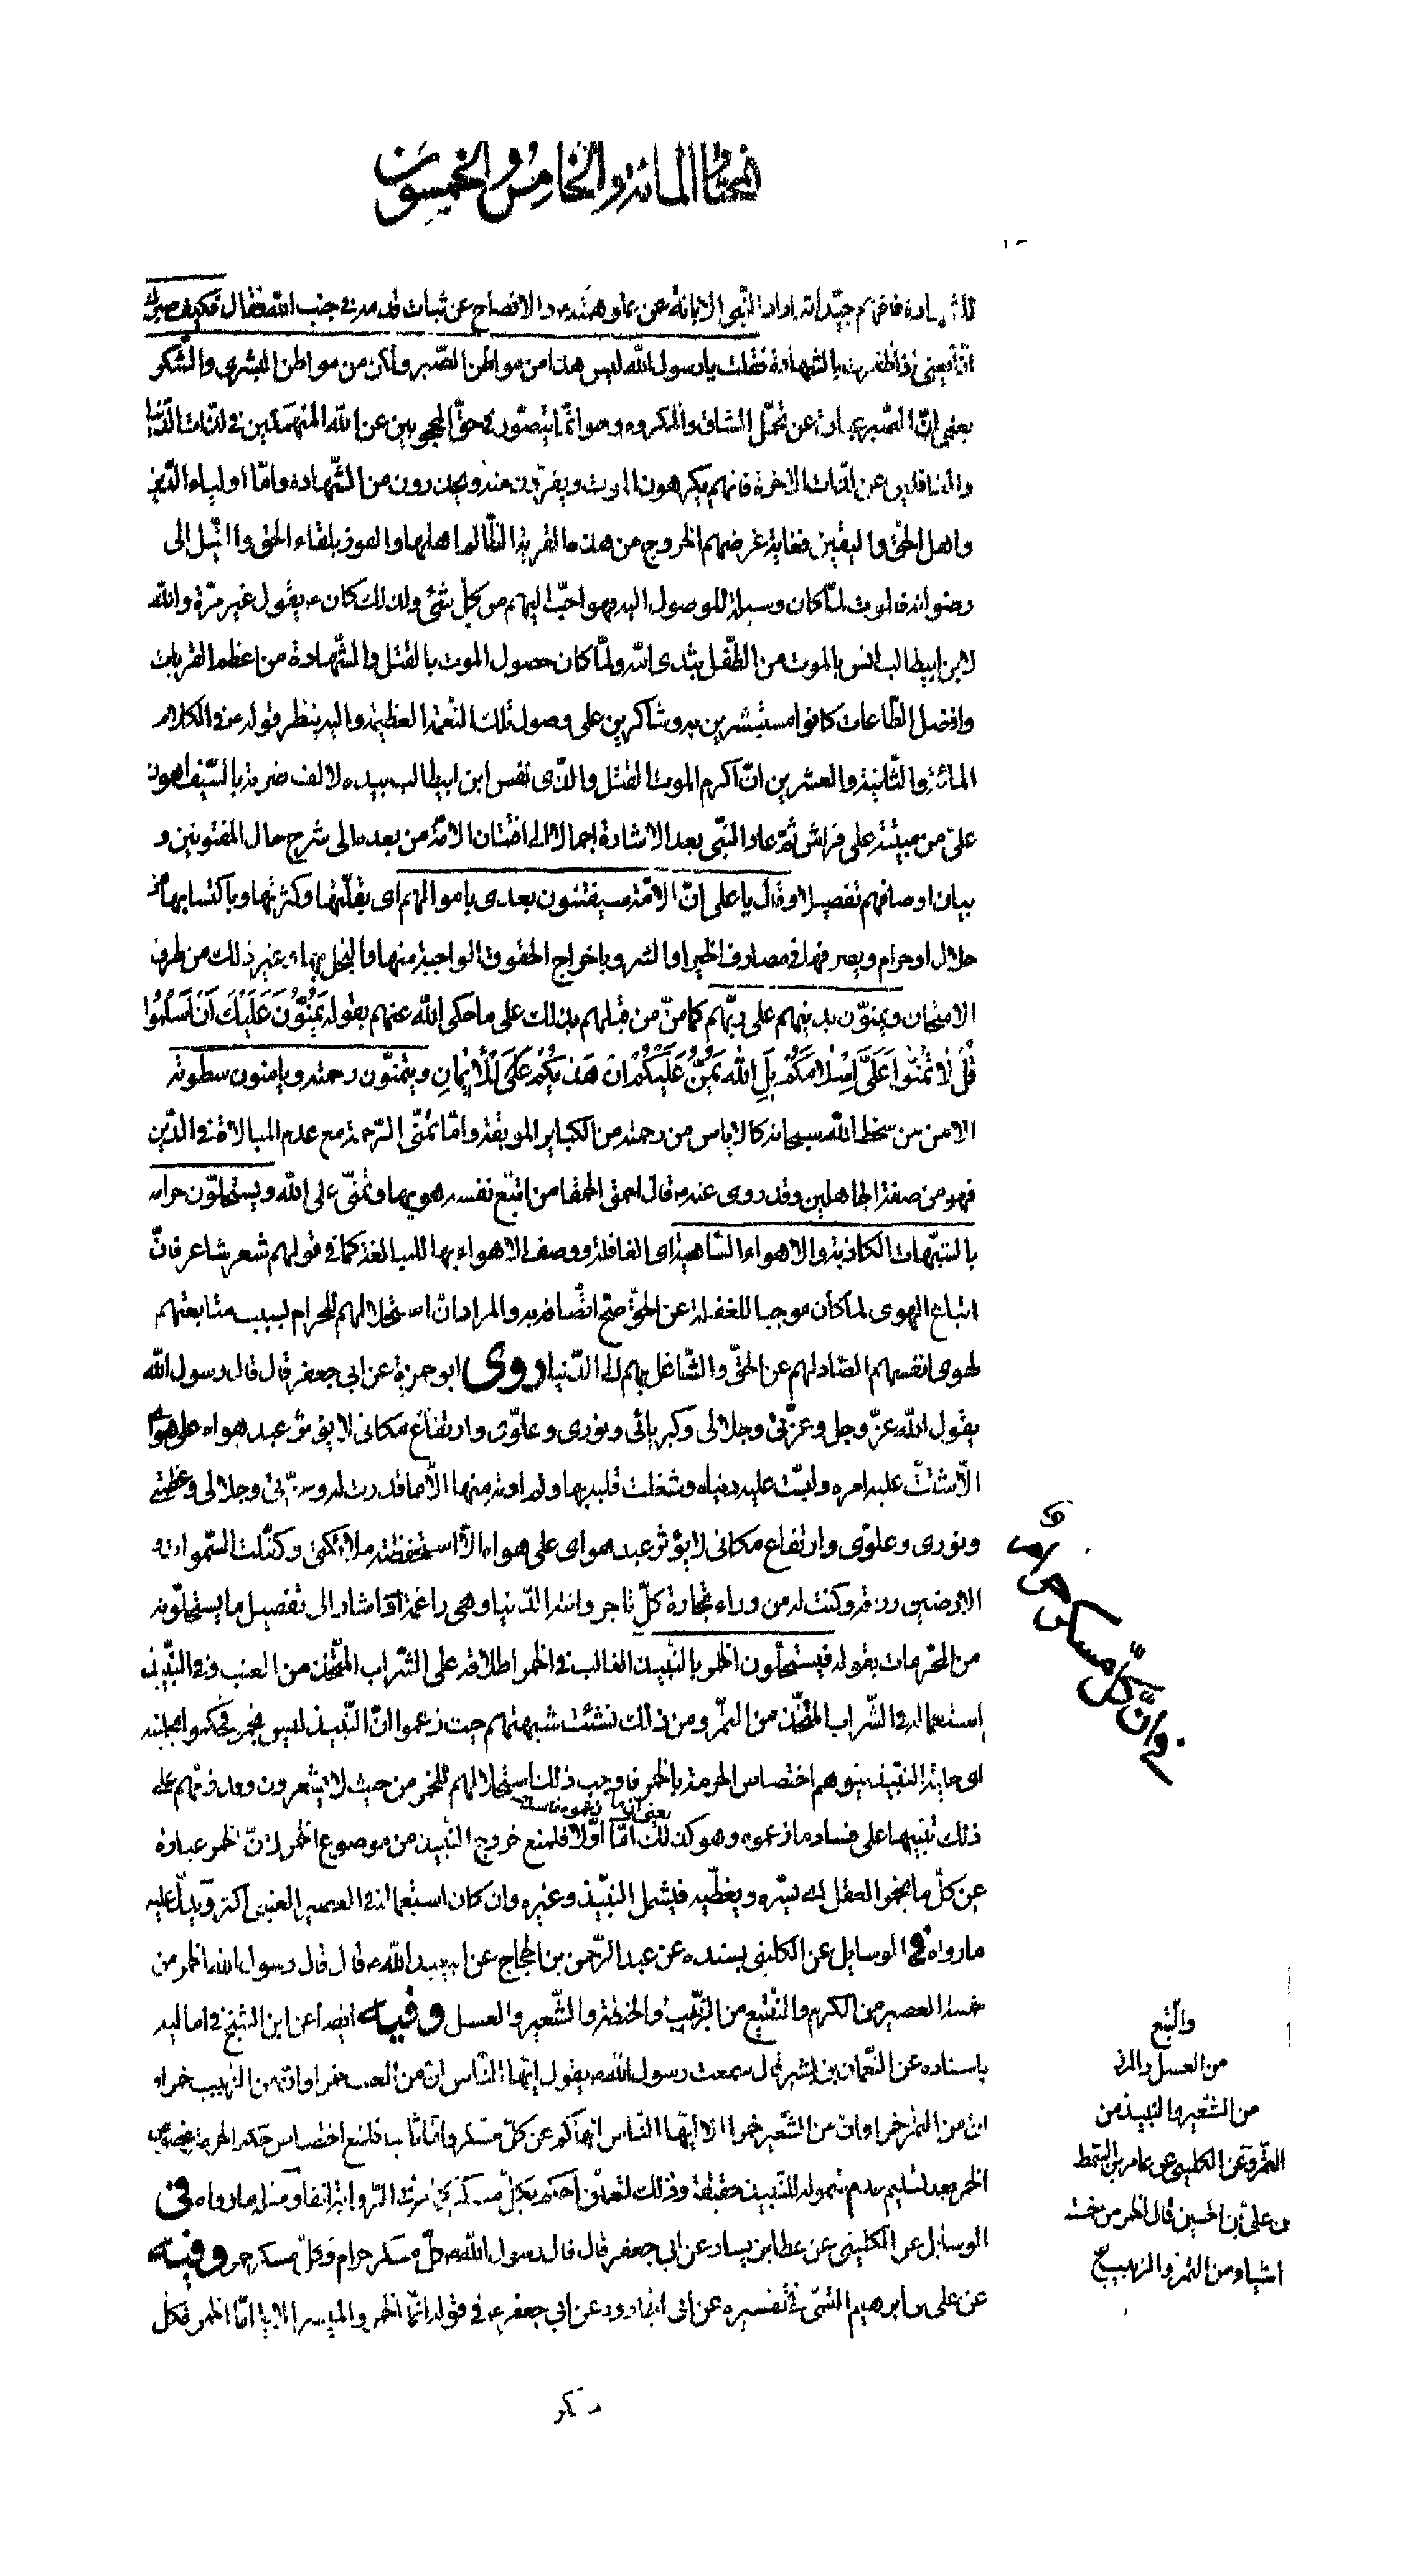 المختار المائة والخامس والخمسون
للشهادة فافهم جيّدا ثمّ اراد النّبى الابانة عن علو همّته والافصاح عن ثبات قدمه فى جنب الله فقال فكيف صبرك
اذا فقلت يا رسول الله ليس هذا من مواطن الصّبر ولكن من مواطن البشرى والشّكر
يعنى انّ الصّبر عبارة عن تحمّل المشاق والمكروه وهو انّما يتصوّر فى حقّ المحجوبين عن الله المنهمكين فى لذّات الدّنيا
والغافلين عن لذّات الاخرة فانهم يكرهون الموت ويفرّون منه ويحذرون من الشّهادة وامّا اولياء الدّين
واهل الحقّ واليقين فغاية غرضهم الخروج من هذه القرية الظّالم اهلها والفوز بلقاء الحق والنّيل الى
رضوانه فالموت لمّا كان وسيلة للوصول اليه فهو احبّ اليهم من كلّ شئ ولذلك كان يقول غير مرّة والله
لابن ابيطالب انس بالموت من الطّفل بثدى امّه ولمّا كان حصول الموت بالقتل والشّهادة من اعظم القربات
وافضل الطّاعات كانوا مستبشرين به وشاكرين على وصول تلك النّعمة العظيمة واليه ينظر قوله فى الكلام
المائة والثّانية والعشرين انّ اكرم الموت القتل والذّى نفس ابن ابيطالب بيده لالف ضربة بالسّيف اهون
علىّ من ميتة على فراش ثمّ عاد النّبى بعد الاشارة اجمالا الى افتتان الامّة من بعده الى شرح حال المفتونين و
بيان اوصافهم تفصيلا وقال يا على انّ الامّة سيفتنون بعدى باموالهم اى بقلّتها وكثرتها وباكتسابها من
حلال او حرام وبصرفها فى مصارف الخير او الشر وباخراج الحقوق الواجبة منها والبخل بها وغير ذلك من طرق
الامتحان ويمنّون بدينهم على ربّهم كما منّ من قبلهم بذلك على ما حكى الله عنهم بقوله يَمُنُّونَ عَلَيْكَ اَنْ اَسْلَمُوا
قُلْ لاٰ تَمُنُّوا عَلَىَّ اِسْلاٰمَكُمْ بَلِ اللهُ يَمُنُّ عَلَيْكُمْ اَنْ هَدٰيكُمْ لِلاْيمٰانِ ويتمنّون رحمته ويامنون سطوته
الامن من سخط الله سبحانه كالاياس من رحمته من الكباير الموبقة وامّا تمنّى الرّحمة مع عدم المبالاة فى الدّين
فهو من صفة الجاهلين وقد روى عنه قال احمق الحمقا من اتبع نفسه هويها وتمنّى على الله ويستحلّون حرامه
بالشبهات الكاذبة والاهواء السّاهية اى الغافلة ووصف الاهواء بها للمبالغة كما فى قولهم شعر شاعر فانّ
اتباع الهوى لما كان موجبا للغفلة عن الحقّ صحّ اتّصافه به والمراد ان استحلالهم للحرام بسبب متابعتهم
لهوى انفسهم الصّادّ لهم عن الحقّ والشّاغل بهم الى الدّنيا روى ابو حمزة عن ابى جعفر قال قال رسول الله
يقول الله عزّ وجل وعزّتى وجلالى وكبريائى ونورى وعلوّى وارتفاع مكانى لا يؤثر عبد هواه على هواى
الاّ شتّت عليه امره ولبّست عليه دنياه وشغلت قلبه بها ولم اوته منها الاّ ما قدّرت له وعزّتى وجلالى وعظمتى
ونورى وعلوّى وارتفاع مكانى لا يؤثر عبد هواى على هواه الاّ استحفظته ملائكتى وكفّلت السّموات و
الارضين رزقه وكنت له من وراء تجارة كلّ تاجر واتته الدّنيا وهى راغمة ثمّ اشار الى تفصيل ما يستحلّونه
من المحرّمات بقوله فيستحلّون الخمر بالنّبيذ الغالب فى الخمر اطلاقه على الشّراب المتّخذ من العنب وفى النّبيذ
استعماله فى الشّراب المتّخذ من التمر ومن ذلك نشئت شبهتهم حيث زعموا انّ النّبيذ ليس بخمر فحكموا بحلّيته
اى حلية النبيذ بتوهم اختصاص الحرمة بالخمر فاوجب ذلك استحلالهم للخمر من حيث لا يشعرون وقد ذمّهم على
يعنى ان ما زعموه فاسد
ذلك تنبيها على فساد ما زعموه وهو كذلك امّا اوّلا فلمنع خروج النّبيذ من موضوع الخمر لانّ الخمر عبارة
عن كلّ ما يخمر العقل اى يستره ويغطّيه فيشمل النّبيذ وغيره وان كان استعماله فى العصير العنبى اكثر ويدلّ عليه
ما رواه فى الوسايل عن الكلينى بسنده عن عبد الرّحمن بن الحجاج عن ابيعبد الله قال قال رسول الله الخمر من
خمسة العصير من الكرم والنّقيع من الزّبيب والحنطة والشّعير والعسل وفيه ايضا عن ابن الشيخ فى اماليه
باسناده عن النّعمان بن بشير قال سمعت رسول الله يقول ايّها النّاس ان من العنب خمرا وان من الزبيب خمرا و
ان من التمر خمرا وان من الشّعير خمرا الا ايّها النّاس انهاكم عن كلّ مسكر وامّا ثانيا فلمنع اختصاص حكم الحرمة بخصوص
الخمر بعد تسليم عدم شموله للنّبيذ حقيقة وذلك لتعلّق الحكم بكلّ مسكر فى الرّواية انفا ومثله ما رواه فى
الوسايل عن الكلينى عن عطا بن يسار عن ابى جعفر قال قال رسول الله كلّ مسكر حرام وكلّ مسكر خمر وفيه
عن على بن ابرهيم القمّى فى تفسيره عن ابى الجارود عن ابى جعفر فى قوله انّما الخمر والميسر الاية امّا الخمر فكلّ
وانّ كلّ مسكر حرام
والبتع
من العسل والمزر
من الشّعير والنبيذ من
التّمر وعن الكلينى عن عامر بن السّمط
عن علىّ بن الحسين قال الخمر من خمسة
اشياء من التمر والزبيب